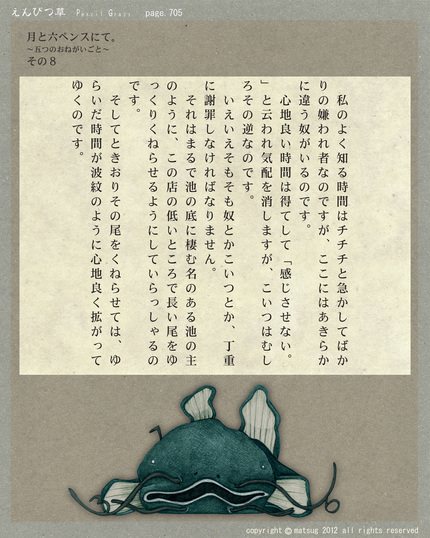 えんぴつ草 Pencil Grass page.705
月と六ペンスにて。
～五つのおねがいごと～
その8
私のよく知る時間はチチチと急かしてばか
りの嫌われ者なのですが、ここにはあきらか
に違う奴がいるのです。
心地良い時間は得てして「感じさせない。
」と云われ気配を消しますが、こいつはむし
ろその逆なのです。
いえいえそもそも奴とかこいつとか、丁重
に謝罪しなければなりません。
それはまるで池の底に棲む名のある池の主
のように、この店の低いところで長い尾をゆ
っくりくねらせるようにしていらっしゃるの
です。
そしてときおりその尾をくねらせては、ゆ
らいだ時間が波紋のように心地良く拡がって
ゆくのです。
copyright © matsug 2012 all rights reserved